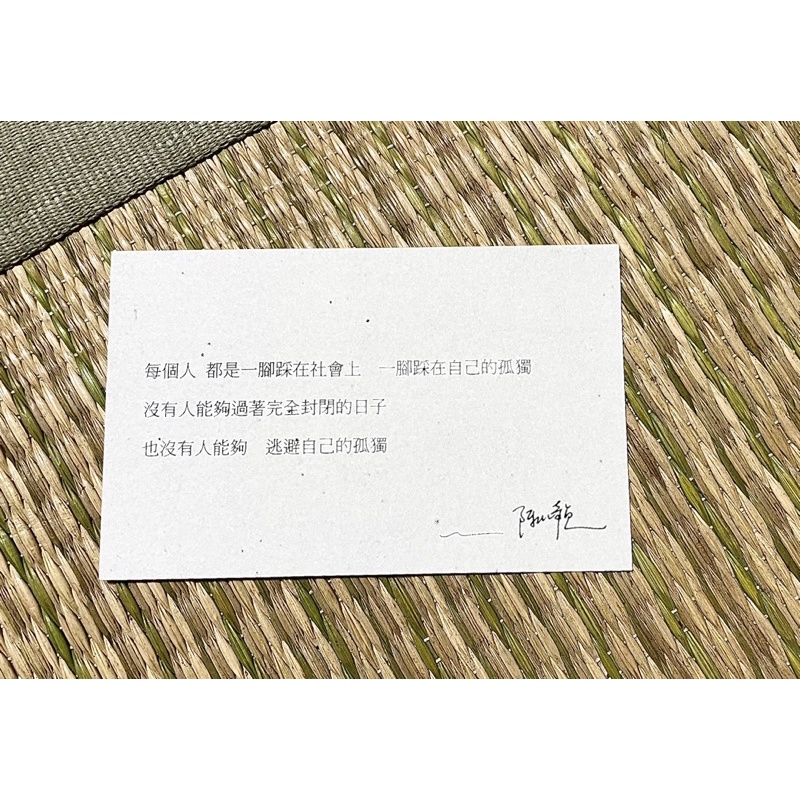 每個人 都是一腳踩在社會上　一腳踩在自己的孤獨
沒有人能夠過著完全封閉的日子
也沒有人能夠　逃避自己的孤獨